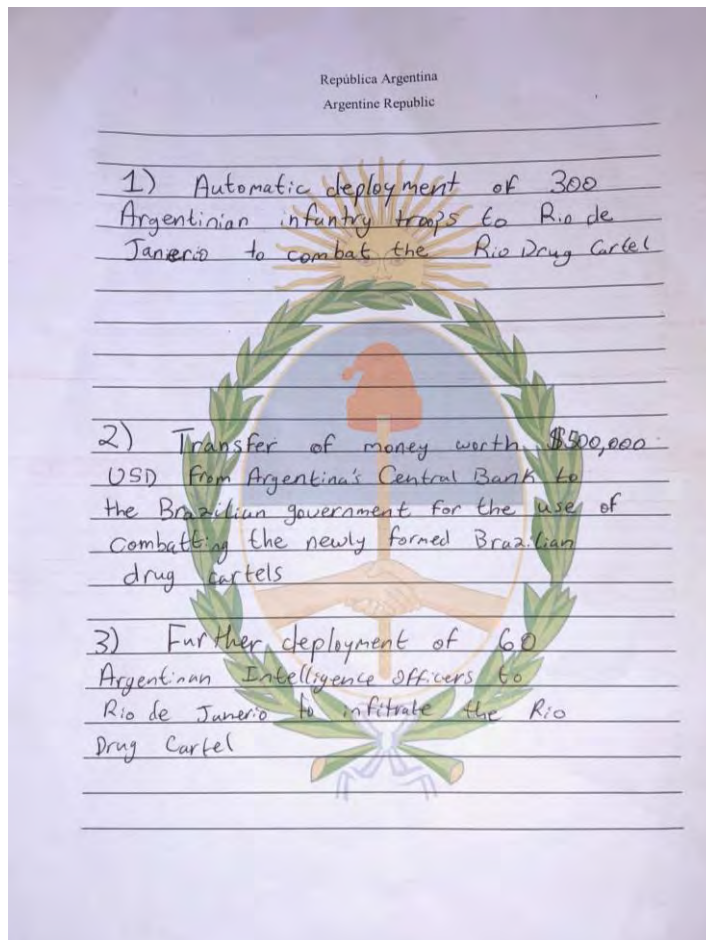 República Argentina
Argentine Republic
1) Automatic deployment of 300
Argentinian infantry troops to Rio de
Janierio to combat the Rio Drug Cartel
2) Transfer of money worth $500,000
USD from Argentina's Central Bank to
the Brazilian government for the use of
Combatting the newly formed Brazilian
drug cartels
3) Further deployment of 60
Argentinan Intelligence officers to
Rio de Janerio to infitrate the Rio
Drug Cartel